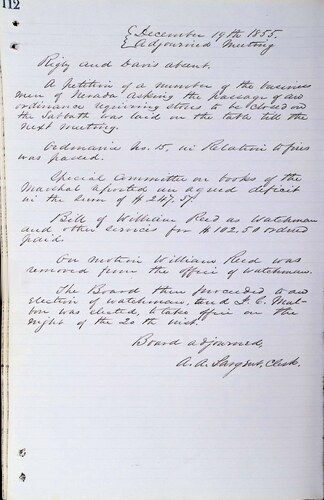 112
December 19th 1855.
Adjourned Meeting
Rigby and Davis absent.
A petition of a number of the business
men of Nevada asking the passage of an
ordinance requiring stores to be closed on
the Sabbath was laid on the table till the
next meeting.
Ordinance No. 15. in Relation to fires
was passed.
Special Committee on books of the
Marshal reported an agreed deficit
in the sum of $247.57.
Bill of William Reed as Watchman
and other services for $102.50 ordered
paid.
On motion William Reed was
removed from the office of watchman.
The Board then proceeded to an
election of watchman, and I. C. Mal-
bon was elected, to take office on the
night of the 20th inst.
Board adjourned,
A. A. Sargent, Clerk.